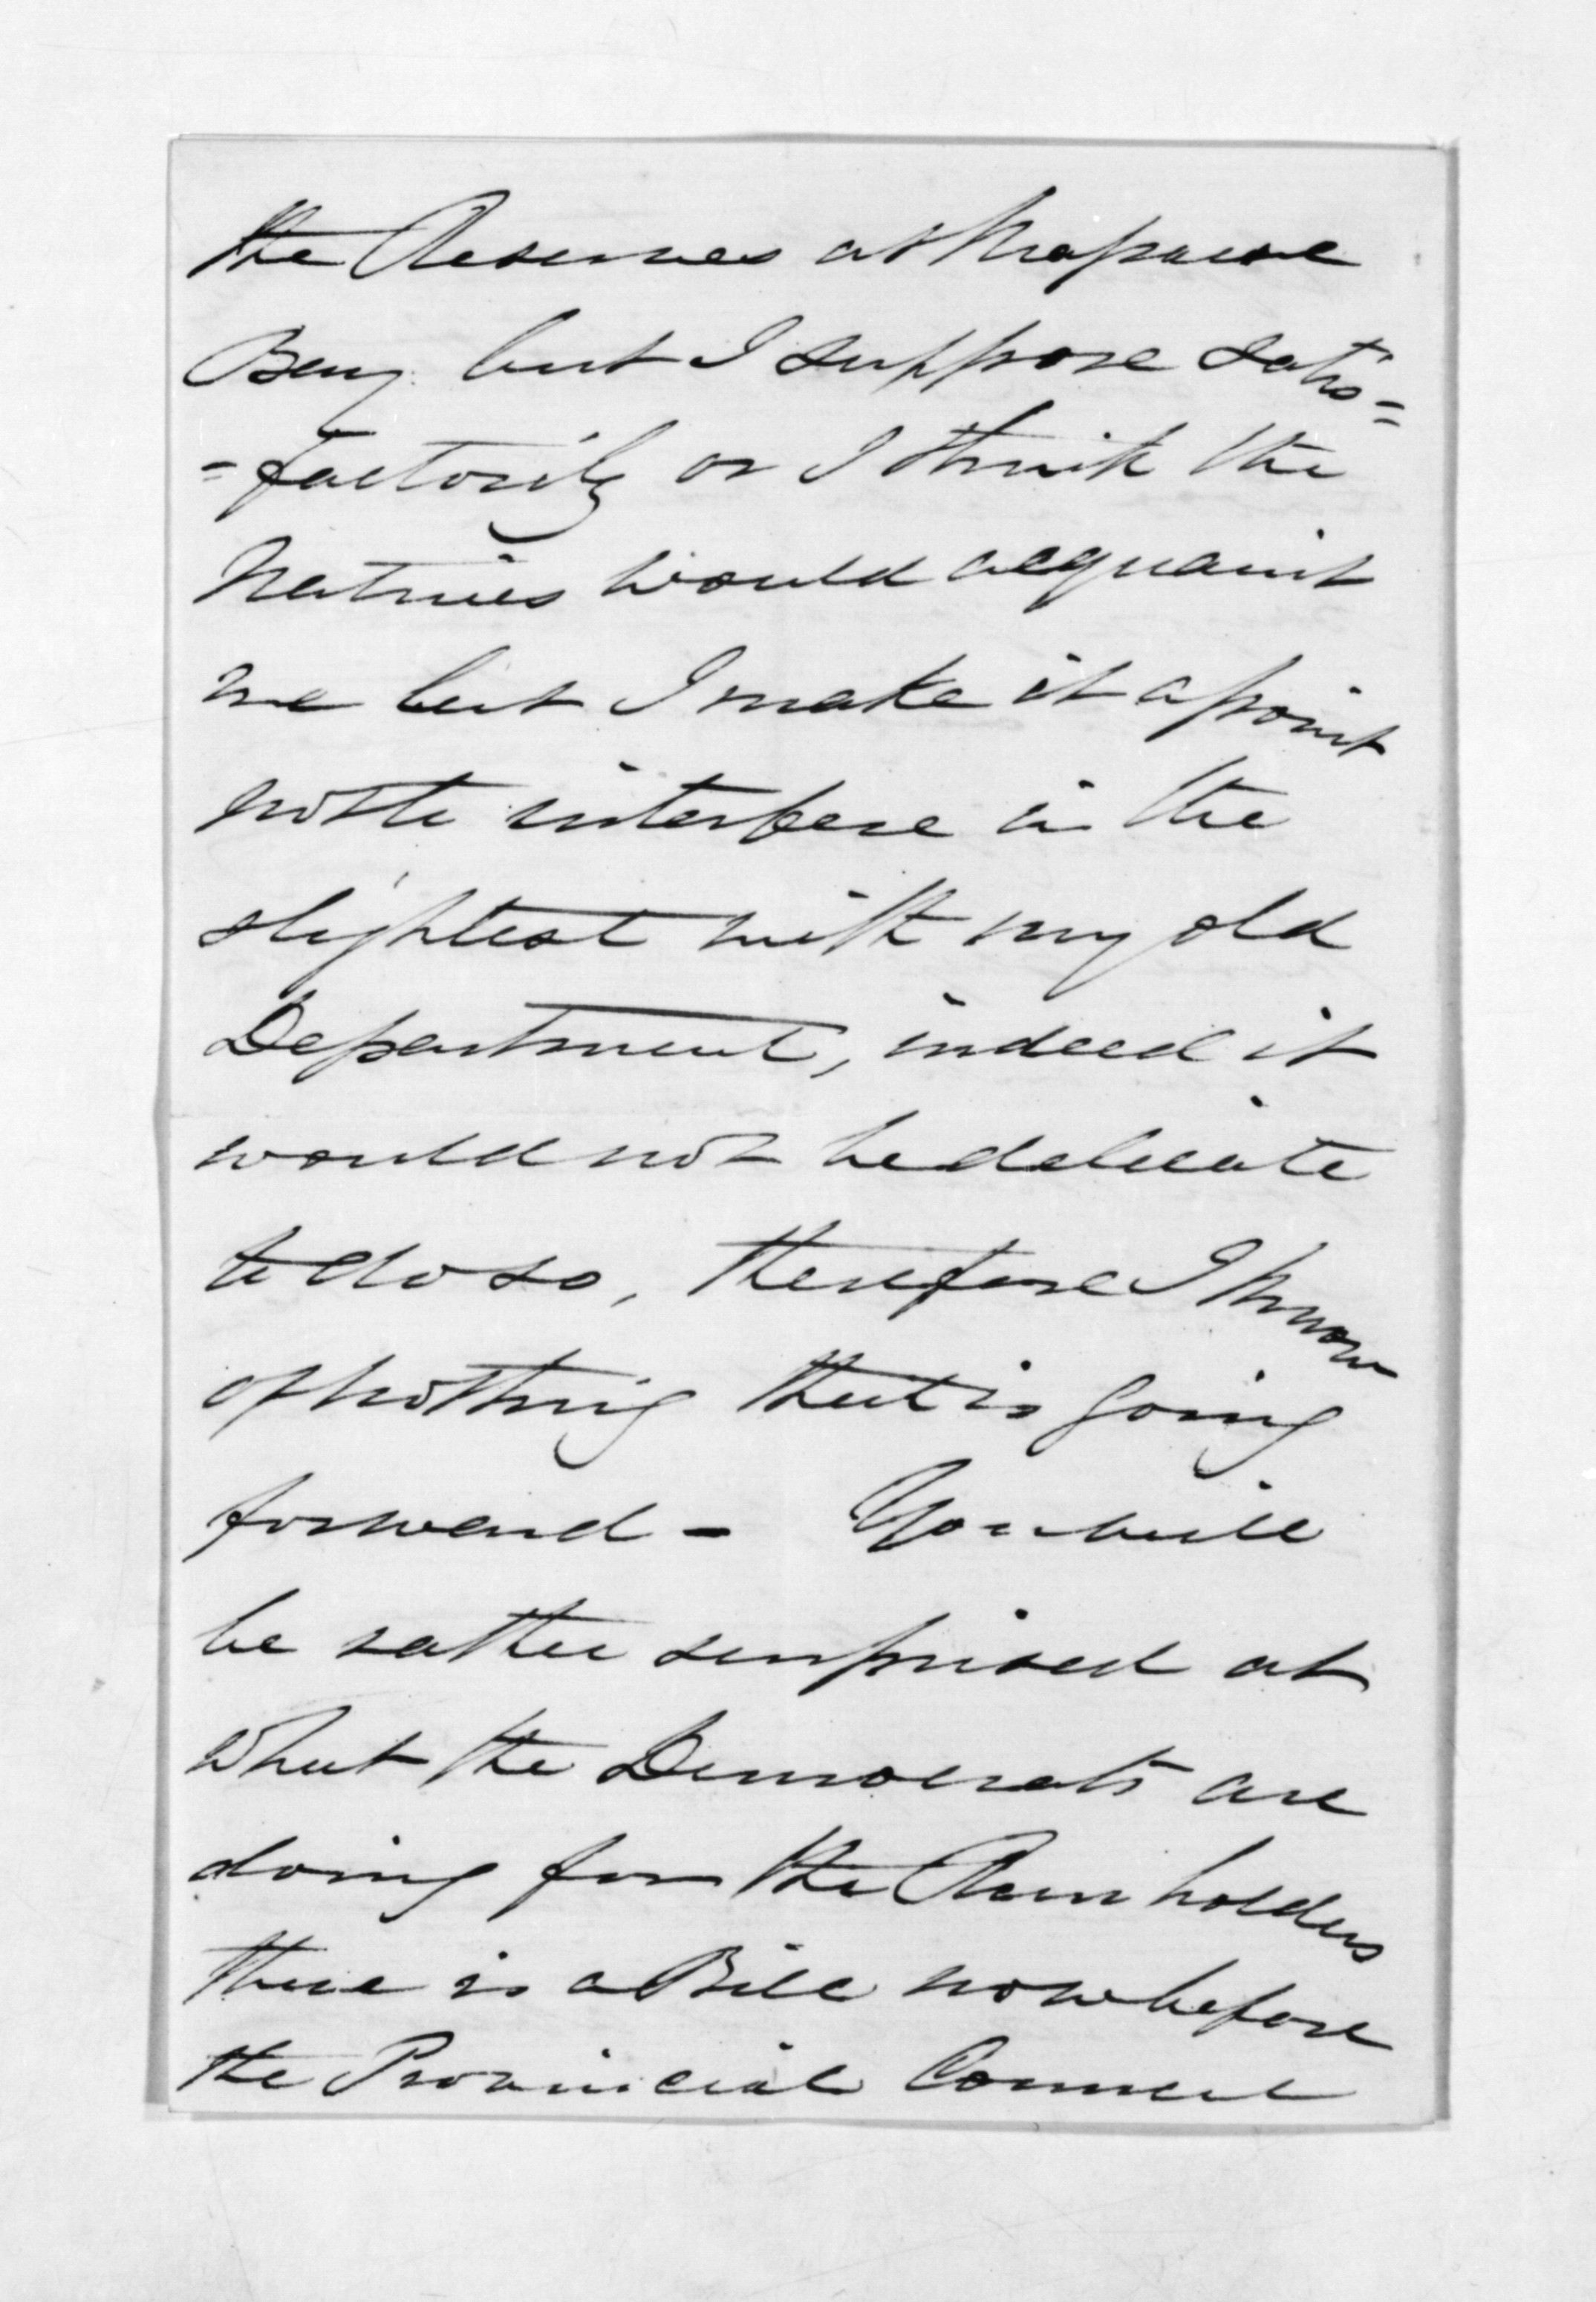 the Reserves at
Bay but I suppose satis=
=factorily or I think the
Natives would acquaint
me but I make it a point
not to interfere in the
slightest with my old
Department, indeed it
would not be delicate
to do so, therefore I know
of nothing that is going
forward - You will
be rather surprised at
what the Democrats are
doing for the Run holders
there is a Bill now before
the Provincial Council